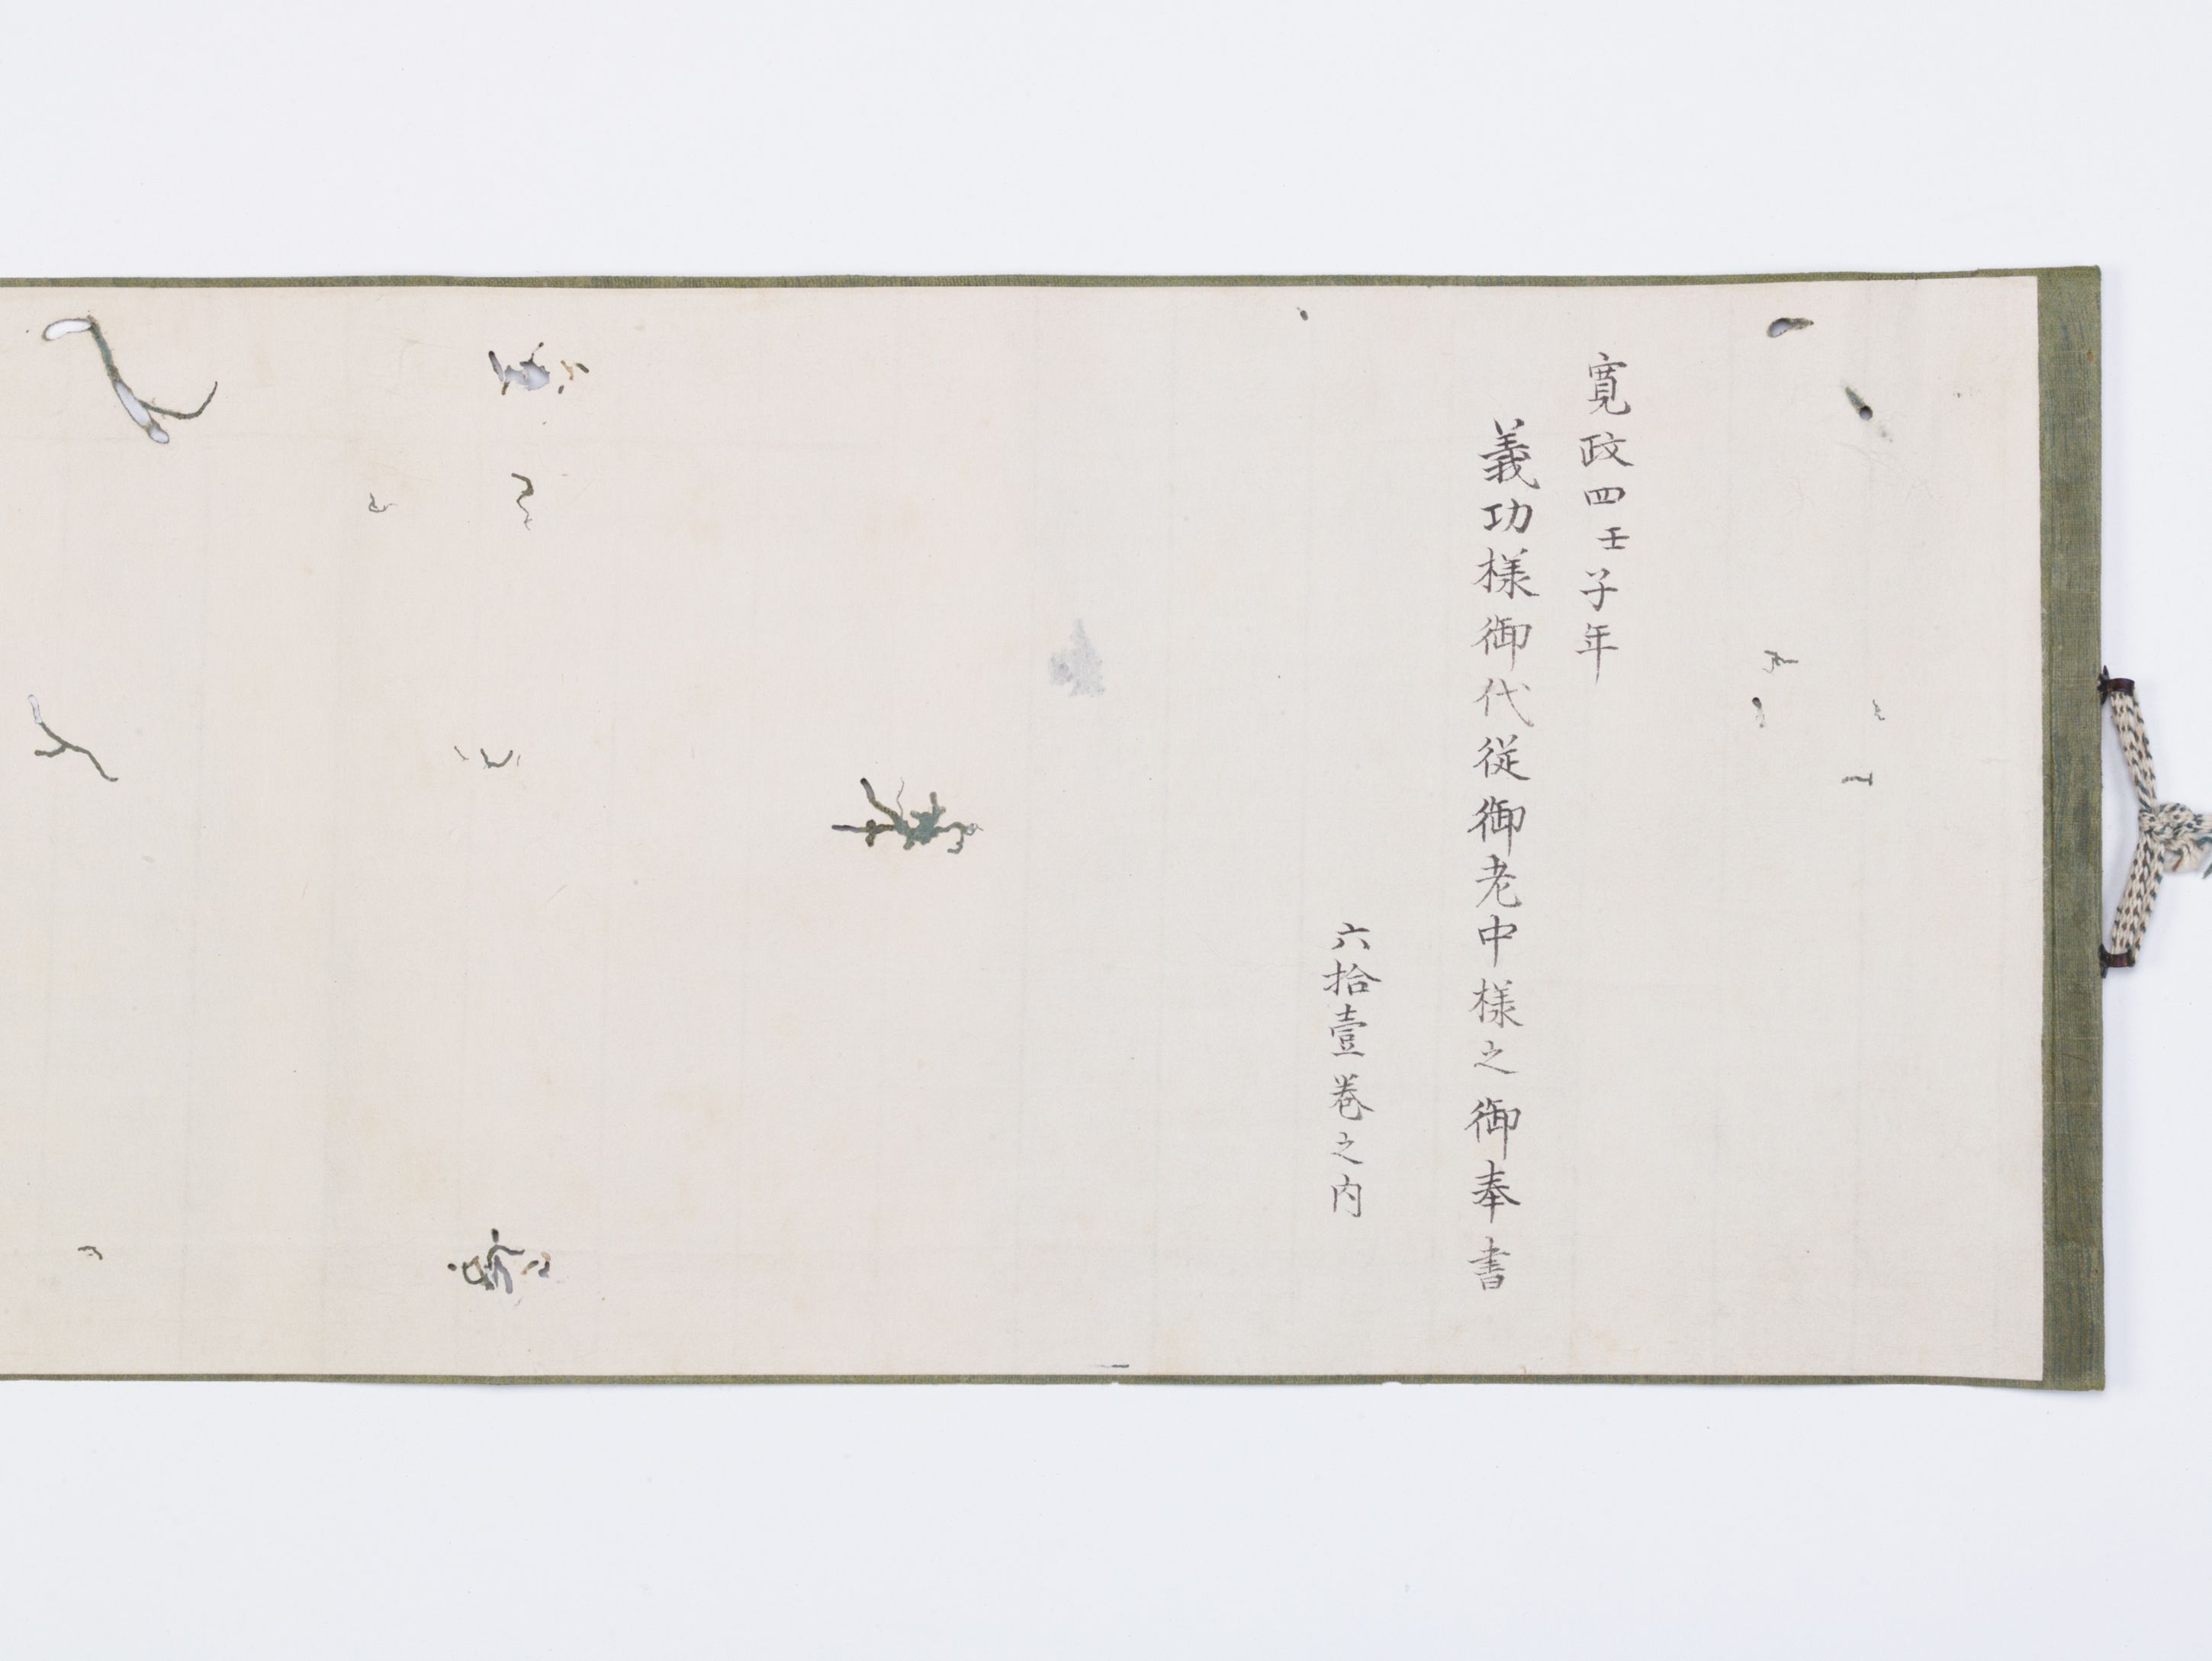 寛政四壬子年
義功様御代従御老中様之御奉書
六拾壹巻之内